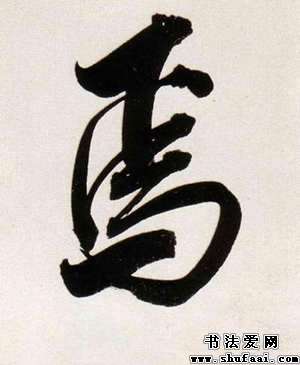 馬
书法爱网
www.shufaai.com